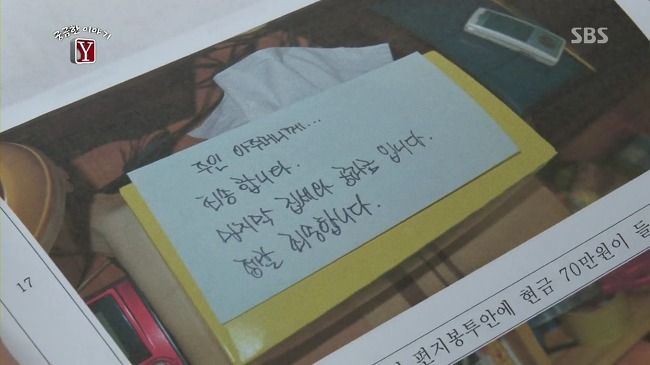 궁금한 이야기
Y
SBS
주인 아주머니께...
죄송합니다.
마지막 집세와 공과금 입니다.
정말 죄송합니다.
17
편지봉투안에 현금 70만원이 들